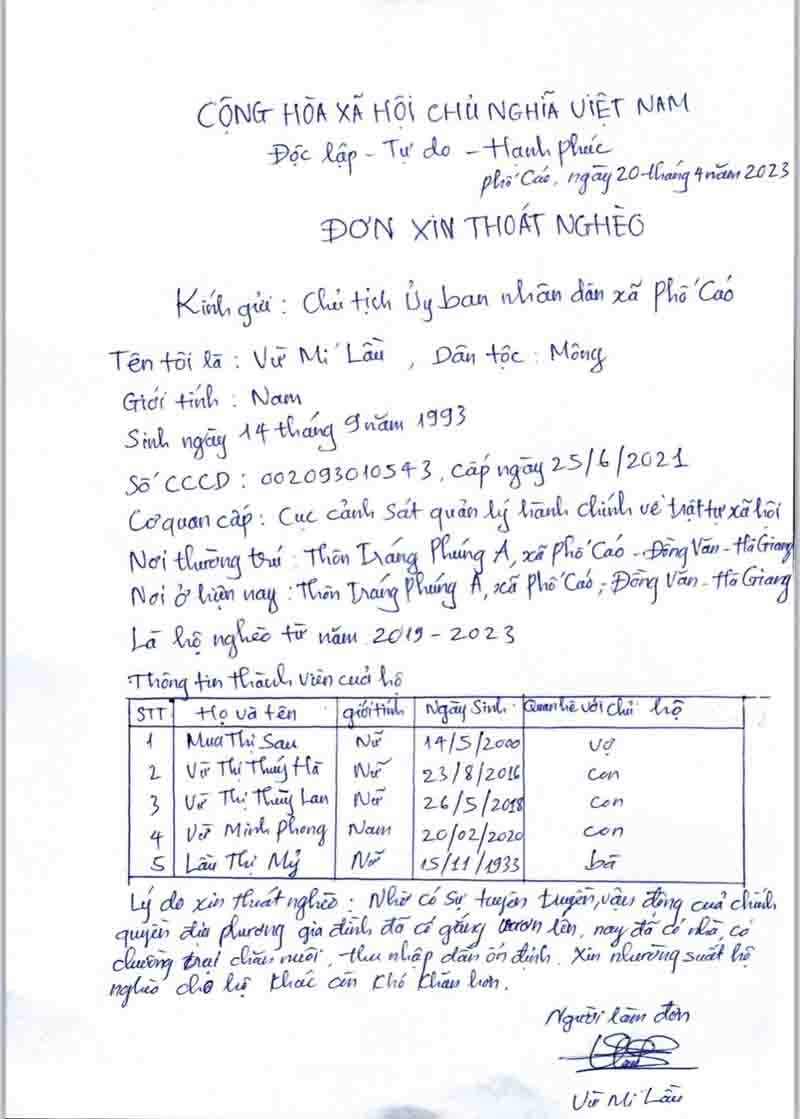 CỘNG HÒA XÃ HỘI CHỦ NGHĨA VIỆT NAM
Độc lập - Tự do - Hạnh phúc
Phố Cáo, ngày 20 tháng 4 năm 2023
ĐƠN XIN THOÁT NGHÈO
Kính gửi : Chủ tịch Ủy ban nhân dân xã Phố Cáo
Tên tôi là : Vừ Mí Lầu , Dân tộc : Mông
Giới tính : Nam
Sinh ngày 14 tháng 9 năm 1993
Số CCCD : 002093010543, cấp ngày 25/6/2021
Cơ quan cấp : Cục cảnh sát quản lý hành chính về trật tự xã hội
Nơi thường trú : Thôn Tráng Phúng A, xã Phố Cáo - Đồng Văn - Hà Giang
Nơi ở hiện nay : Thôn Tráng Phúng A, xã Phố Cáo - Đồng Văn - Hà Giang
Là hộ nghèo từ năm 2019 - 2023
Thông tin thành viên cuả hộ
STT Họ và tên giới tính Ngày Sinh Quan hệ với chủ hộ
1 Mua Thị Sau Nữ 14/5/2000 vợ
2 Vừ Thị Thúy Hà Nữ 23/8/2016 con
3 Vừ Thị Thùy Lan Nữ 26/5/2018 con
4 Vừ Minh Phong Nam 20/02/2020 con
5 Lầu Thị Mỷ Nữ 15/11/1933 bà
Lý do xin thuát nghèo : Nhờ có sự tuyên truyền, vận động cuả chính
quyền địa phương gia đình đã cố gắng vươn lên, nay đã có nhà, có
chuồng trại chăn nuôi, thu nhập dần ổn định. Xin nhường suất hộ
nghèo cho hộ khác còn khó khăn hơn.
Người làm đơn
Vừ Mí Lầu